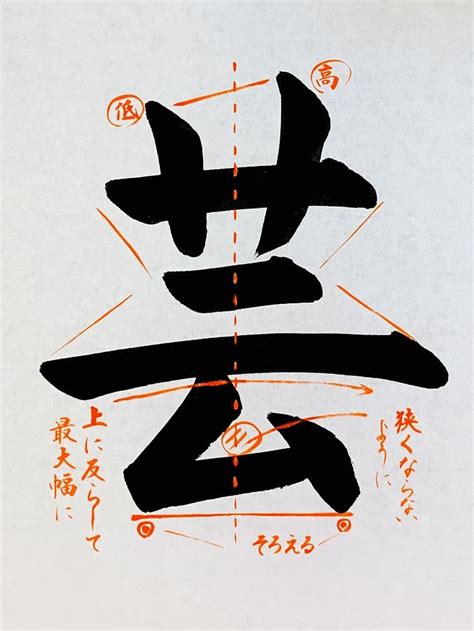 低
高
芸
狭くならない
ように
上に反らして
最大幅に
そろえる